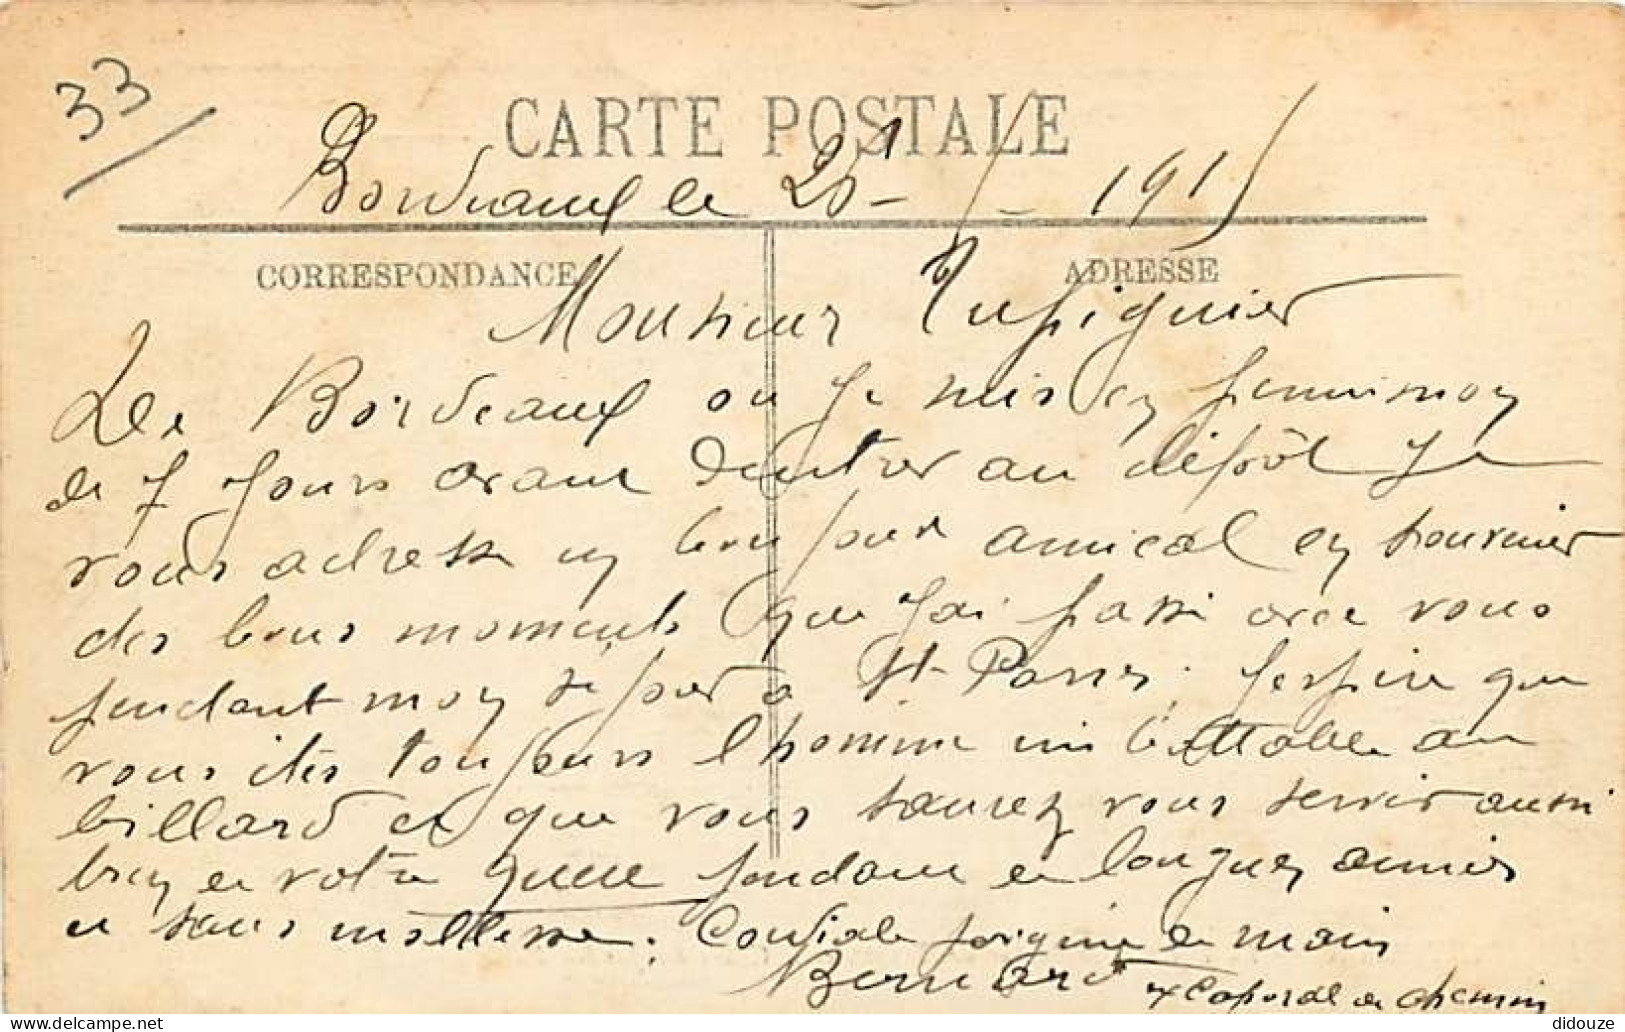 33
CARTE POSTALE
Bordeaux le 20 - 1915
CORRESPONDANCE
ADRESSE
Monsieur
De Bordeaux ou Je suis en
de 7 Jours avant d'entrer au dépôt Je
vous adresse un bonjour amical en souvenir
des bons moments que J'ai passé avec vous
pendant mon séjour à St-
J'espère que
vous êtes toujours l'homme imbattable au
billard et que vous saurez vous servir aussi
bien de votre queue pendant de longues années
et sans mollesse. Cordiale poignée de main
Bernard
Caporal de chemin
didouze
https://www.delcampe.net